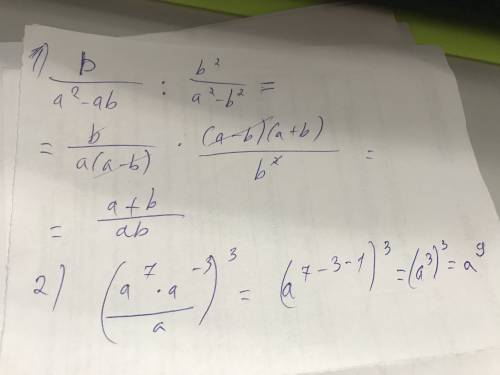 1) b/(a² - ab) : b²/(a² - b²) =
= b/(a(a-b)) · (a-b)(a+b)/b² =
= (a+b)/(ab)
2) ((a⁷ · a⁻³)/a)³ = (a⁷⁻³⁻¹)³ = (a³)³ = a⁹